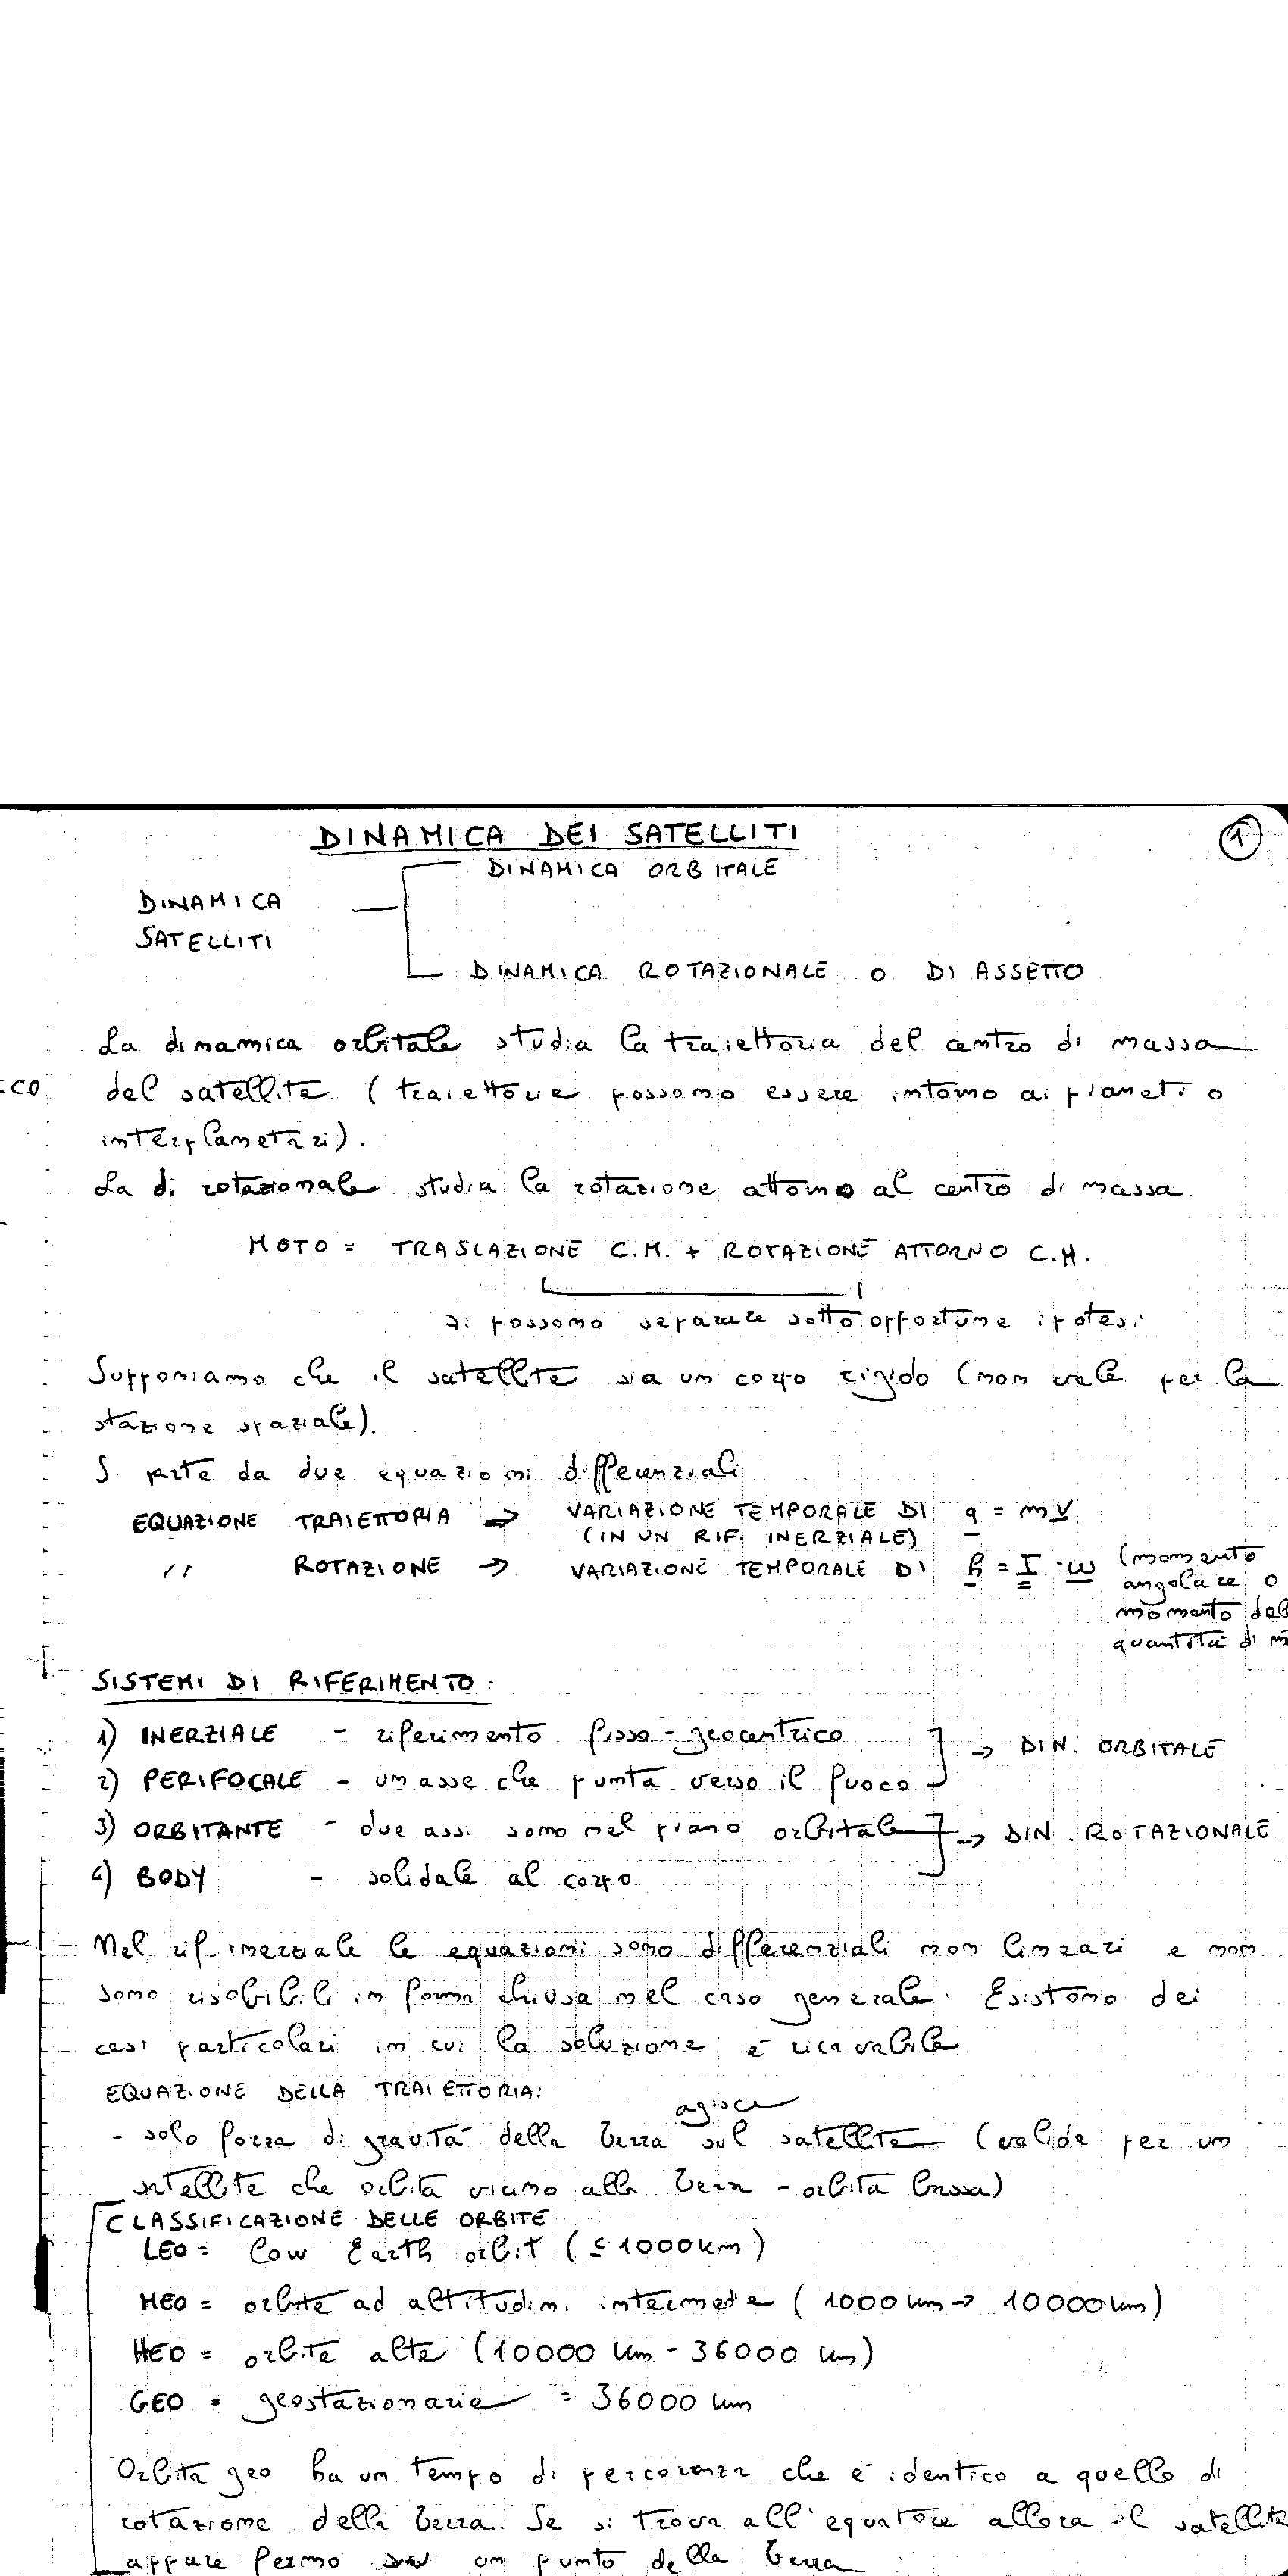 DINAMICA DEI SATELLITI
1
DINAMICA ORBITALE
DINAMICA
SATELLITI
DINAMICA ROTAZIONALE O DI ASSETTO
La dinamica orbitale studia la traiettoria del centro di massa
del satellite (traiettorie possono essere intorno ai pianeti o
interplanetari).
La di rotazionale studia la rotazione attorno al centro di massa.
MOTO = TRASLAZIONE C.M. + ROTAZIONE ATTORNO C.M.
si possono separare sotto opportune ipotesi
Supponiamo che il satellite sia un corpo rigido (non vale per la
stazione spaziale).
Si parte da due equazioni differenziali
EQUAZIONE TRAIETTORIA → VARIAZIONE TEMPORALE DI q = mV
(IN UN RIF. INERZIALE)
" ROTAZIONE → VARIAZIONE TEMPORALE DI h = I · ω (momento
angolare o
momento del
quantità di m
SISTEMI DI RIFERIMENTO:
1) INERZIALE - riferimento fisso - geocentrico
→ DIN. ORBITALE
2) PERIFOCALE - un asse che punta verso il fuoco
3) ORBITANTE - due assi sono nel piano orbitale → DIN. ROTAZIONALE
4) BODY - solidale al corpo
Nel rif. inerziale le equazioni sono differenziali non lineari e non
sono risolvibili in forma chiusa nel caso generale. Esistono dei
casi particolari in cui la soluzione è ricavabile
EQUAZIONE DELLA TRAIETTORIA:
- solo forza di gravità della terra agisce sul satellite (valida per un
satellite che orbita vicino alla terra - orbita bassa)
CLASSIFICAZIONE DELLE ORBITE
LEO = Low Earth orbit (≤ 1000 km)
MEO = orbite ad altitudini intermedie (1000 km → 10000 km)
HEO = orbite alte (10000 km - 36000 km)
GEO = geostazionarie = 36000 km
Orbita geo ha un tempo di percorrenza che è identico a quello di
rotazione della terra. Se si trova all'equatore allora il satellite
appare fermo un punto della terra